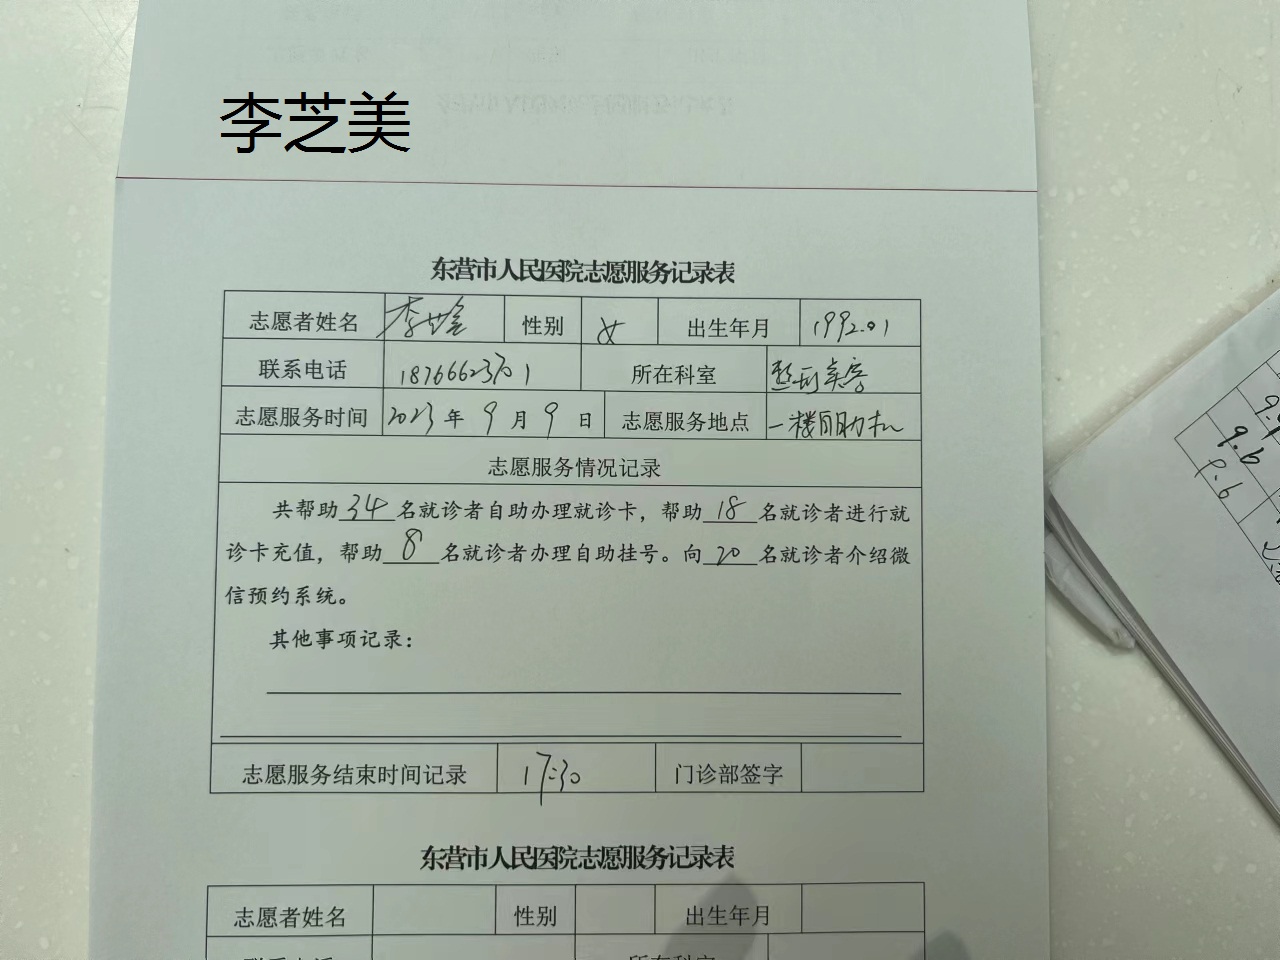 李芝美
东营市人民医院志愿服务记录表
志愿者姓名 李 性别 女 出生年月 1992.01
联系电话 18766623701 所在科室 整形美容
志愿服务时间 2023年9月9日 志愿服务地点 一楼自助机
志愿服务情况记录
共帮助34名就诊者自助办理就诊卡，帮助18名就诊者进行就
诊卡充值，帮助8名就诊者办理自助挂号。向20名就诊者介绍微
信预约系统。
其他事项记录：
志愿服务结束时间记录 17:30 门诊部签字
东营市人民医院志愿服务记录表
志愿者姓名 性别 出生年月
联系电话 所在科室
9.6
9.6